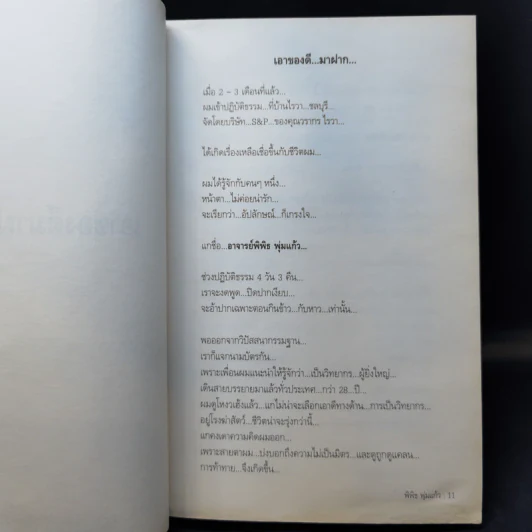 เอาของดี...มาฝาก...
เมื่อ 2 - 3 เดือนที่แล้ว...
ผมเข้าปฏิบัติธรรม...ที่บ้านไรวา...ชลบุรี...
จัดโดยบริษัท...S&P...ของคุณวรากร ไรวา...
ได้เกิดเรื่องเหลือเชื่อขึ้นกับชีวิตผม...
ผมได้รู้จักกับคนๆ หนึ่ง...
หน้าตา...ไม่ค่อยน่ารัก...
จะเรียกว่า...อัปลักษณ์...ก็เกรงใจ...
แกชื่อ...อาจารย์พิพิธ พุ่มแก้ว...
ช่วงปฏิบัติธรรม 4 วัน 3 คืน...
เราจะงดพูด...ปิดปากเงียบ...
จะอ้าปากเฉพาะตอนกินข้าว...กับหาว...เท่านั้น...
พอออกจากวิปัสสนากรรมฐาน...
เราก็แจกนามบัตรกัน...
เพราะเพื่อนผมแนะนำให้รู้จักว่า...เป็นวิทยากร...ผู้ยิ่งใหญ่...
เดินสายบรรยายมาแล้วทั่วประเทศ...กว่า 28...ปี...
ผมดูโหงวเฮ้งแล้ว...แกไม่น่าจะเลือกเอาดีทางด้าน...การเป็นวิทยากร...
อยู่โรงฆ่าสัตว์...ชีวิตน่าจะรุ่งกว่านี้...
แกคงเดาความคิดผมออก...
เพราะสายตาผม...บ่งบอกถึงความไม่เป็นมิตร...และดูถูกดูแคลน...
การท้าทาย...จึงเกิดขึ้น...
พิพิธ พุ่มแก้ว | 11